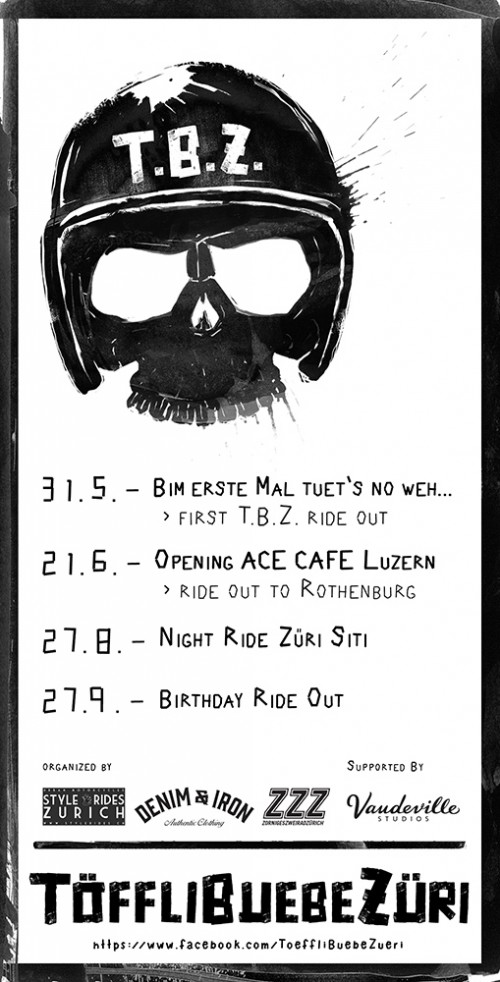 T.B.Z.
31.5. – Bim erste Mal tuet's no weh...
> first T.B.Z. ride out
21.6. – Opening ACE CAFE Luzern
> ride out to Rothenburg
27.8. – Night Ride Züri Siti
27.9. – Birthday Ride Out
organized by
Supported By
STYLE RIDES
ZURICH
DENIM & IRON
Authentic Clothing
ZZZ
ZORNIGESZWEIRADZÜRICH
Vaudeville
STUDIOS
TÖFFLIBUEBEZÜRI
https://www.facebook.com/ToeffliBuebeZueri